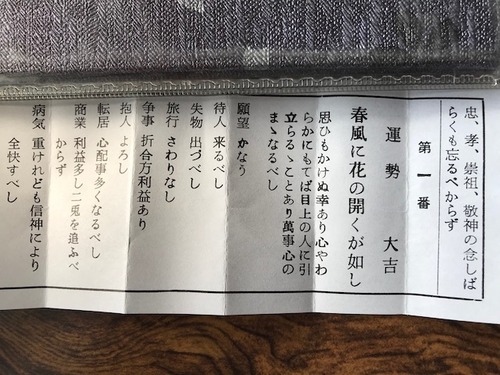 忠、孝、崇祖、敬神の念しば
らくも忘るべからず
第一番
運勢 大吉
春風に花の開くが如し
思ひもかけぬ幸あり心やわ
らかにもてば目上の人に引
立らるゝことあり萬事心の
まゝなるべし
願望 かなう
待人 来るべし
失物 出づべし
旅行 さわりなし
争事 折合方利益あり
抱人 よろし
転居 心配事多くなるべし
商業 利益多し二兎を追ふべ
からず
病気 重けれども信神により
全快すべし